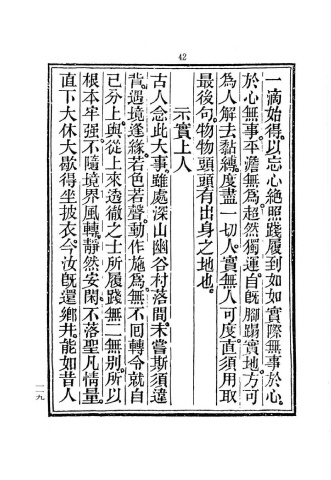 42
一滴始得。以忘心絶照踐履到如如實際無事於心。
於心無事。平澹無爲。超然獨運。自旣腳蹋實地。方可
爲人解去黏縛。度盡一切人。實無人可度。直須用取
最後句。物物頭頭有出身之地也。
示實上人
古人念此大事。雖處深山幽谷村落間。未嘗斯須違
背。遇境逢緣。若色若聲。動作施爲。無不囘轉令就自
己分上。與從上來透徹之士所履踐無二無別。所以
根本牢强。不隨境界風轉。靜然安閑。不落聖凡情量。
直下大休大歇。得坐披衣。今汝旣還鄕井。能如昔人
一一九